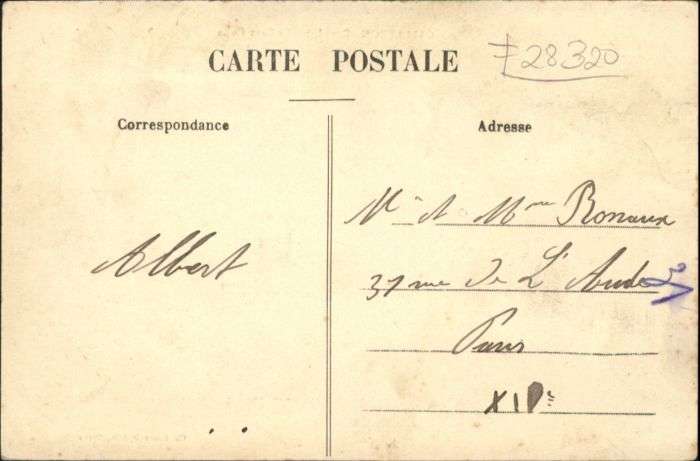 CARTE POSTALE
F28320
Correspondance
Adresse
Albert
Mr et Mme Ronaux
37 rue de L'Aude
Paris
XIVe